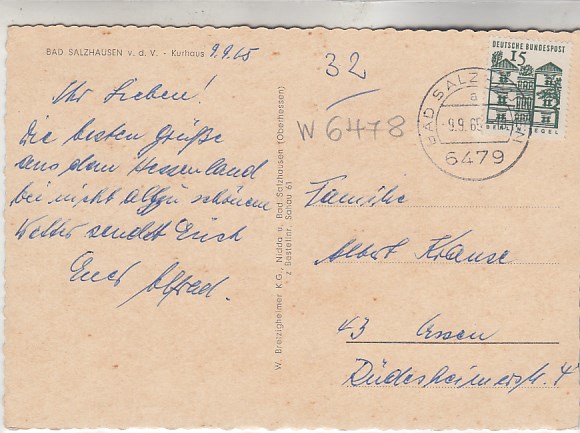 BAD SALZHAUSEN v. d. V. - Kurhaus 9.9.65
Ihr Lieben!
Die besten Grüße
aus dem Hessenland
bei nicht allzu schönem
Wetter sendet Euch
Euer Alfred.
W. Breizigheimer K.G., Nidda u. Bad Salzhausen (Oberhessen)
z Bestellnr. Sahau 61
32
W 6478
DEUTSCHE BUNDESPOST
15
BAD SALZ
a
-9.9.65
6479
Familie
Albert Krause
43 Essen
Rüdesheimerstr. 4